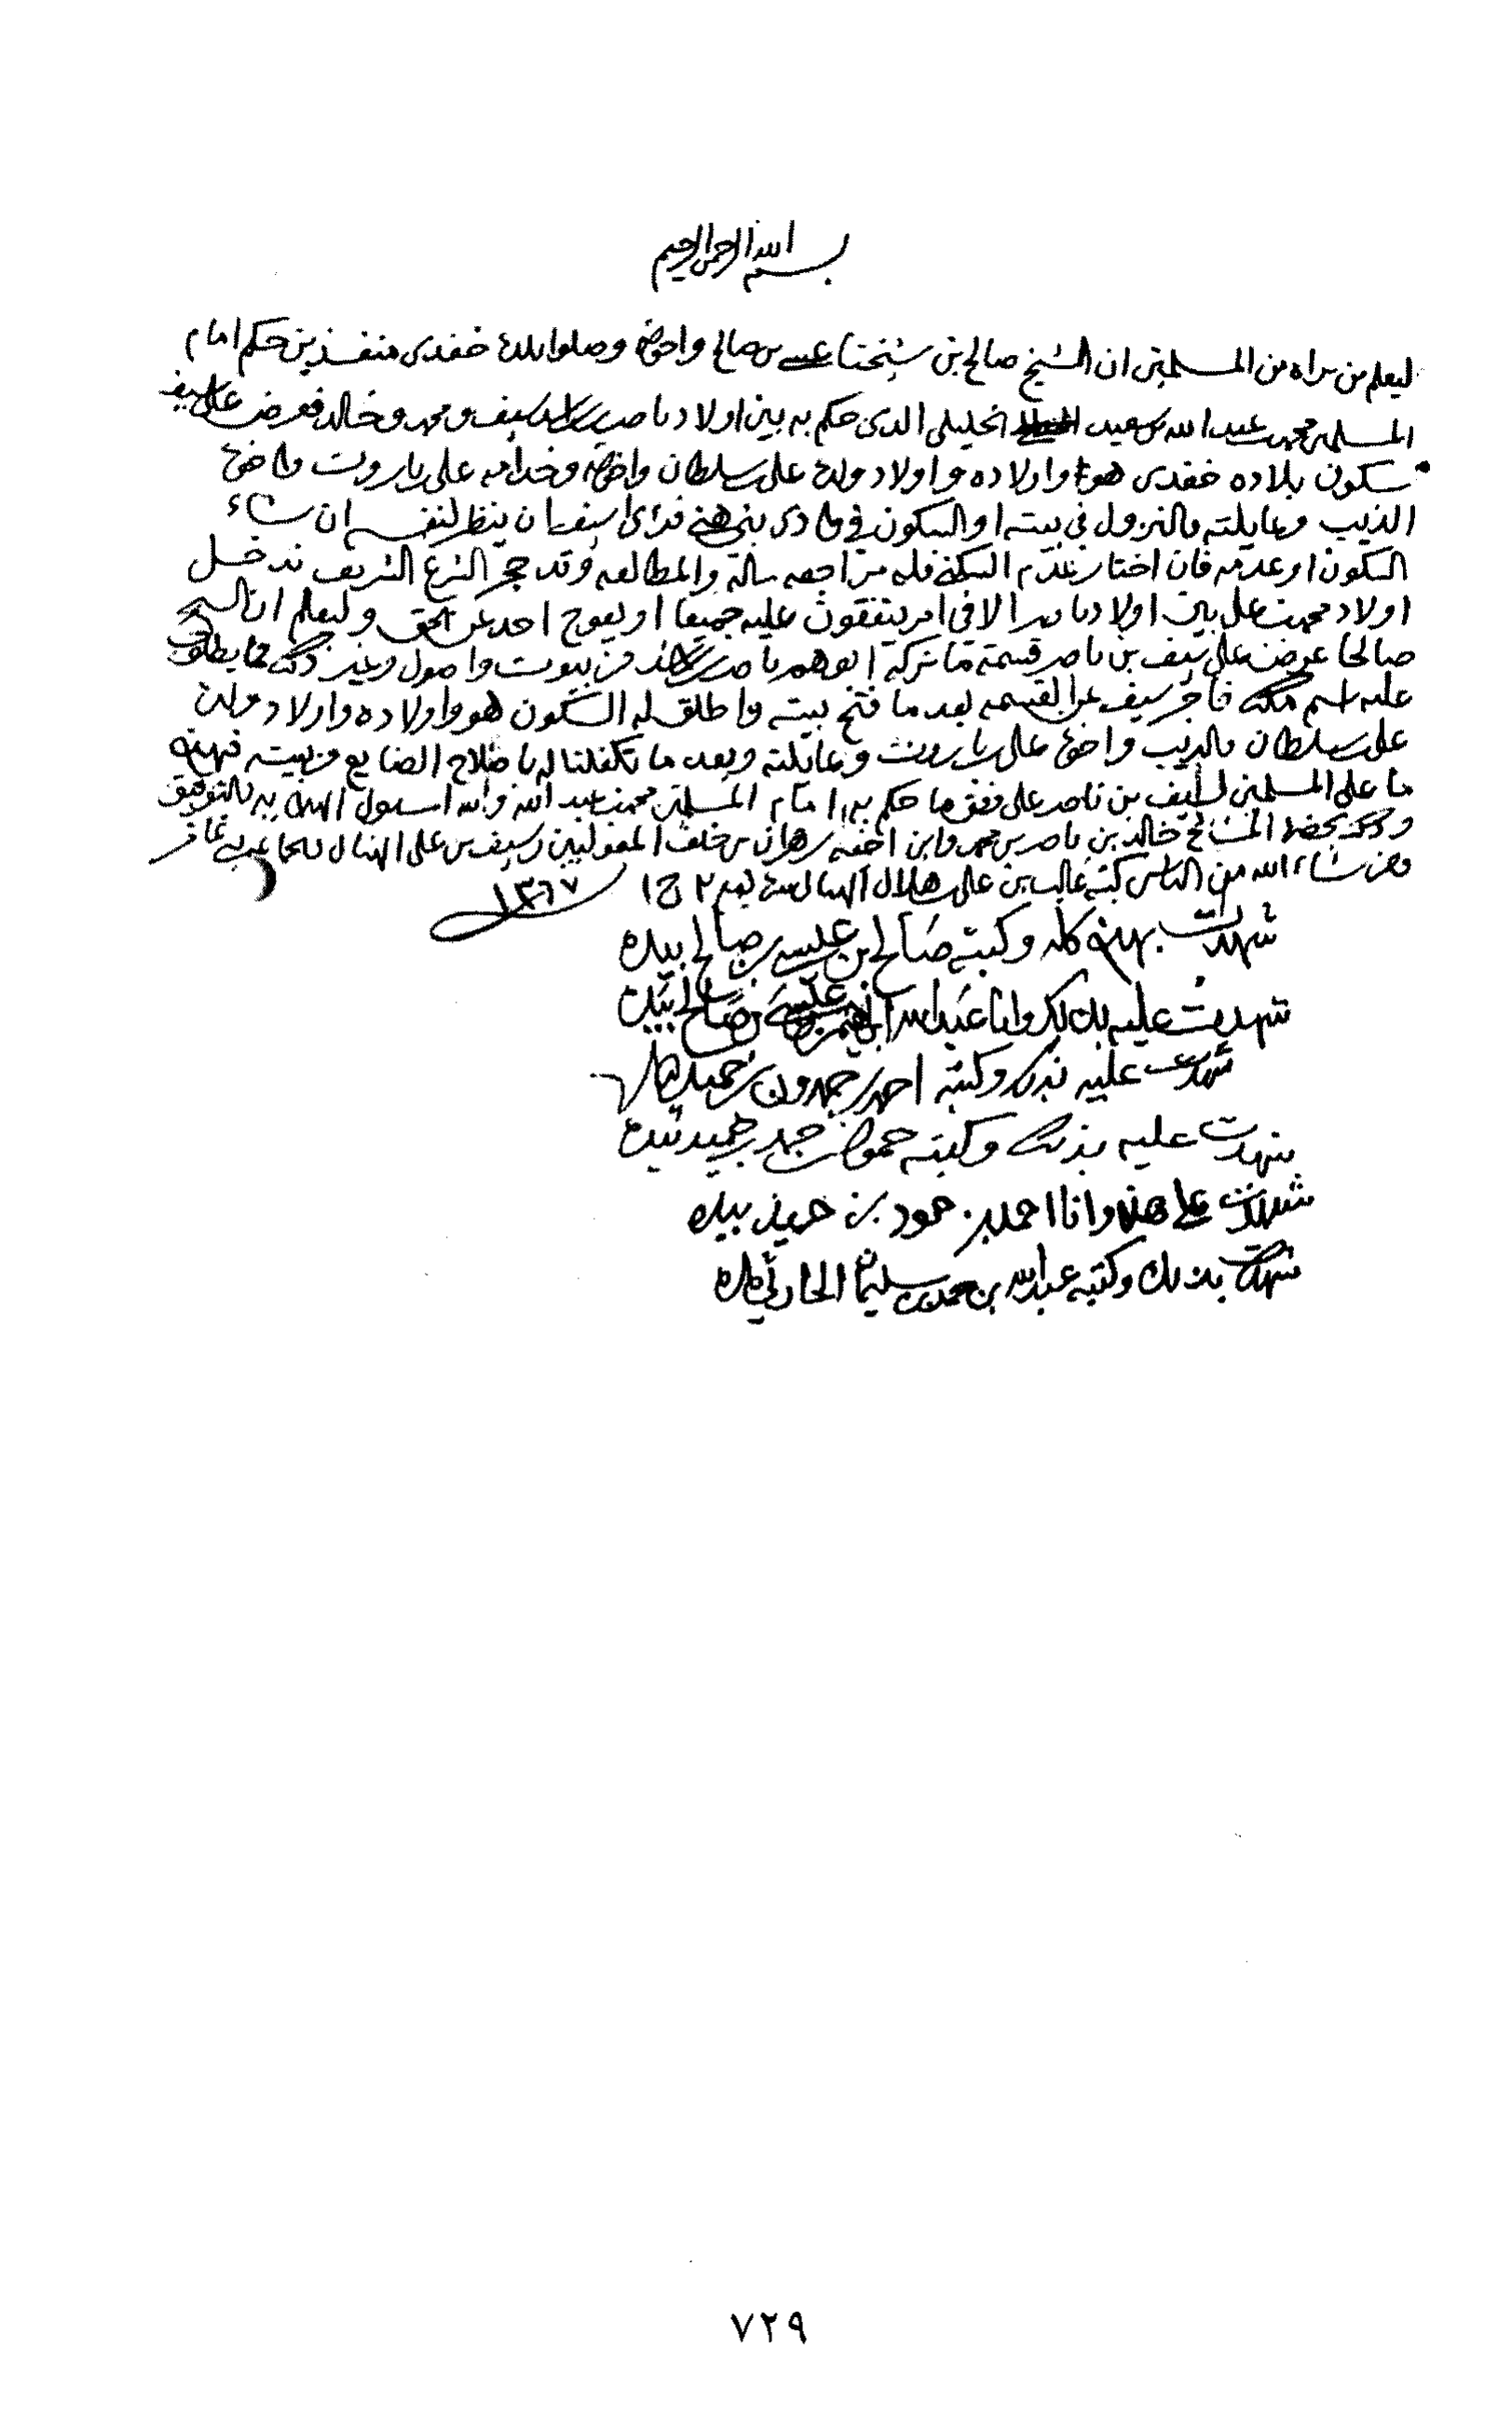 بسم الله الرحمن الرحيم
ليعلم من يراه من المسلمين ان الشيخ صالح بن شيخنا عيسى بن صالح واخوه وصلوا بلدة خفدى منفذين حكم امام
المسلمين محمد بن عبد الله بن سعيد الخليلي الذي حكم به بين اولاد ناصر سيف ومحمد وخالد فعرض على سيف
سكون بلاده خفدى هو واولاده واولاد ولده على سلطان واخوه وخدامه على باروت واخوه
الذيب وعايلته والنزول في بيته او السكون في وادي بني هني فرأى سيف ان ينظر لنفسه ان شاء
السكون او عدمه فان اختار عدم السكنى فله مراجعه ساله والمطالعه وقد حجر الشرع الشريف تدخل
اولاد محمد بن علي بين اولاد ناصر الا في امر يتفقون عليه جميعا او يعوج احد عن الحق وليعلم ان الشيخ
صالحا عرض على سيف بن ناصر قسمة ما تركه ابوهم ناصر من بيوت واصول وغير ذلك مما يطلق
عليه اسم ملك فاخر سيف عن القسمه بعد ما فتح بيته واطلق له السكون هو واولاده واولاد ولده
على سلطان والذيب واخوه على باروت وعائلته وبعد ما تكفلنا له باصلاح الضايع من بيته فهذه
ما على المسلمين لسيف بن ناصر على وفق ما حكم به امام المسلمين محمد بن عبد الله والله المسئول الهدايه والتوفيق
وذلك بحضرة المشائخ خالد بن ناصر بن محمد وابن اخيه زهران بن خلف المغوليين وسيف بن علي
ومن شاء الله من الناس كتبه غالب بن علي بن هلال الهنائي بيده يوم ٢ ج ١ ١٣٦٧
شهدت بهذه كله وكتبته صالح بن عيسى بن صالح بيده
شهدت عليه بذلك وانا عبد الله ابراهيم بن عيسى بن صالح بيده
شهدت عليه بذلك وكتبته احمد بن حمدون بن حميد
شهدت عليه بذلك وكتبته حمود بن حمد بن حميد بيده
شهدت على هذا وانا احمد بن حمود بن حميد بيده
شهدت بذلك وكتبه عبد الله بن محمد بن سليمان الحارثي بيده
٧٢٩